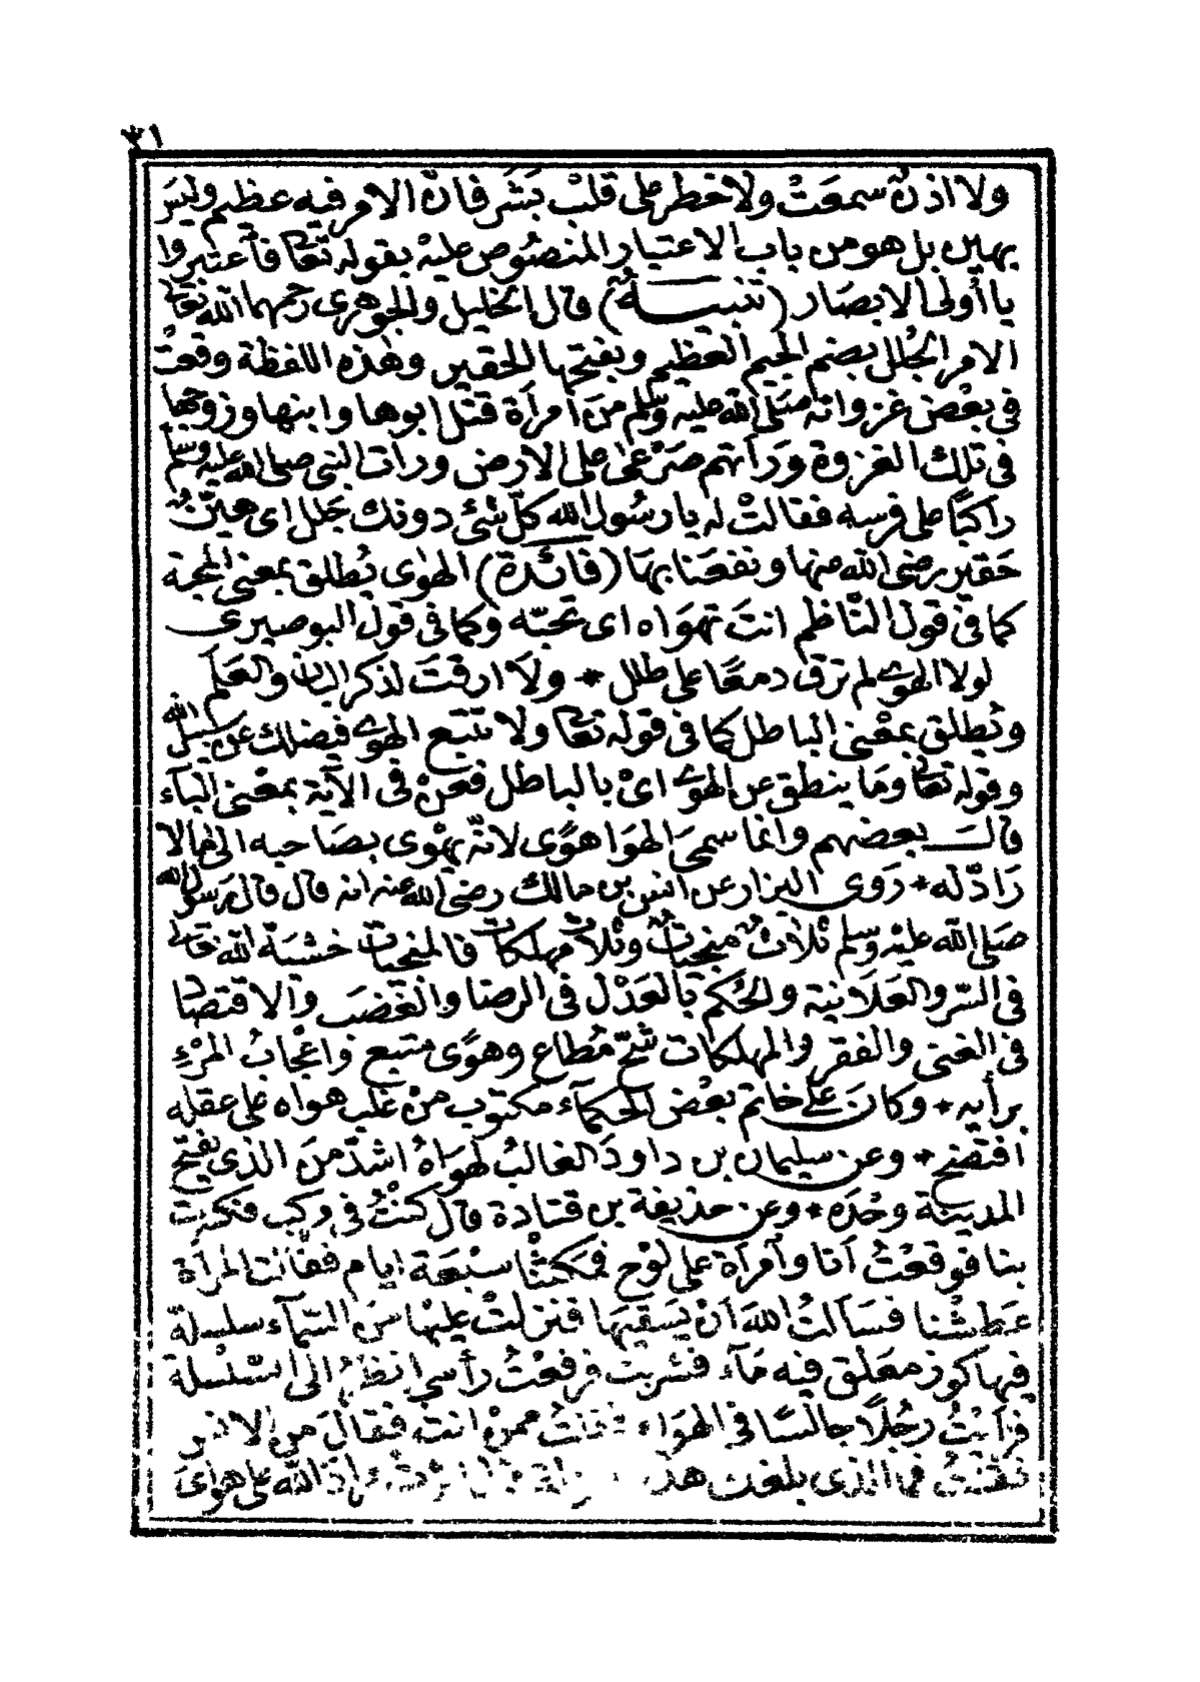 ٣١
ولا اذن سمعَتْ ولا خطر على قلْب بَشَر فانّ الامر فيه عظيم وليسَ
بهين بل هو من باب الاعتبار المنصُوص عليْه بقوله تعالى فاعتبروا
يا أولى الابصَار (تنبيه) قال الخليل والجوهرى رحمهما الله تعالى
الامر الجُلل بضم الجيم العَظيم وبفتحها الحقير وهٰذه اللفظة وقعتْ
فى بعْض غزواته صَلّى الله عليه وسلم منَ امرأة قتل ابوها وابنها وزوجها
فى تلك الغزوة ورَأتهم صَرْعى على الارض ورات النبى صلى الله عليه وسلم
راكبًا على فرسه فقالتْ له يا رسُول الله كلّ شئ دونك جَلل اى هيّن
حَقير رضى الله عنها ونفعَنا بهَا (فائدة) الهوٰى يُطلق بمعنى المحبة
كما فى قول النّاظم انتَ تهوَاه اى تحبّه وكما فى قول البوصيرى
لولا الهوى لم ترق دمعًا على طلل * ولا ارقتَ لذكر البان والعَلم
ويُطلق بمعْنى الباطل كما فى قوله تعالى ولا تتبع الهوى فيضلك عن سبيل الله
وقوله تعالى ومَا ينطق عن الهوى اىْ بالباطل فعَنْ فى الآية بمعْنى الباء
قال بعضهم وانما سمىَ الهوَا هوًى لانّه يهْوى بصَاحبه الى ما لا
رَادّ له * رَوى البزار عن انس بن مالك رضى الله عنه انه قال قال رسول الله
صَلى الله عليْه وسلم ثلاثٌ منجياتٌ وثلاثٌ مهلكات فالمنجيات خشيَة الله تعالى
فى السّر والعَلَانية والحُكم بالعَدْل فى الرضا والغَضَب والاقتصَاد
فى الغنى والفقر والمهلكات شُحّ مُطاع وهوًى متبع واعْجابُ المرْءِ
برأيه * وكانَ على خاتم بعْض الحكمآء مكتوب منْ غلب هواه على عقله
افتضح * وعن سليمان بن داودَ الغالبُ لهوَاهُ اشدّ منَ الذى يفتح
المدينة وحْدَه * وعن حذيفة بن قتادة قال كنْتُ فى مركب فكسرت
بنا فوقعْتُ اَنا وامرَأة على لوْح فمكثْنا سبْعَة ايام فقالت المرأة
عَطِشْنا فسَألتُ اللهَ اَنْ يَسْقيَها فنزلتْ عليْها منَ السّمآء سلسلة
فيها كوز معَلق فيه مَآء فشربت فرفعْتُ رأسى انظر الى السّلْسلة
فرَأيْتُ رجُلًا جالسًا فى الهوَاء فقلتُ ممنْ انت فقالَ من الانس
فقلتُ فما الذى بلغك هذه المنزلة قال اثرت مراد الله على هواىَ